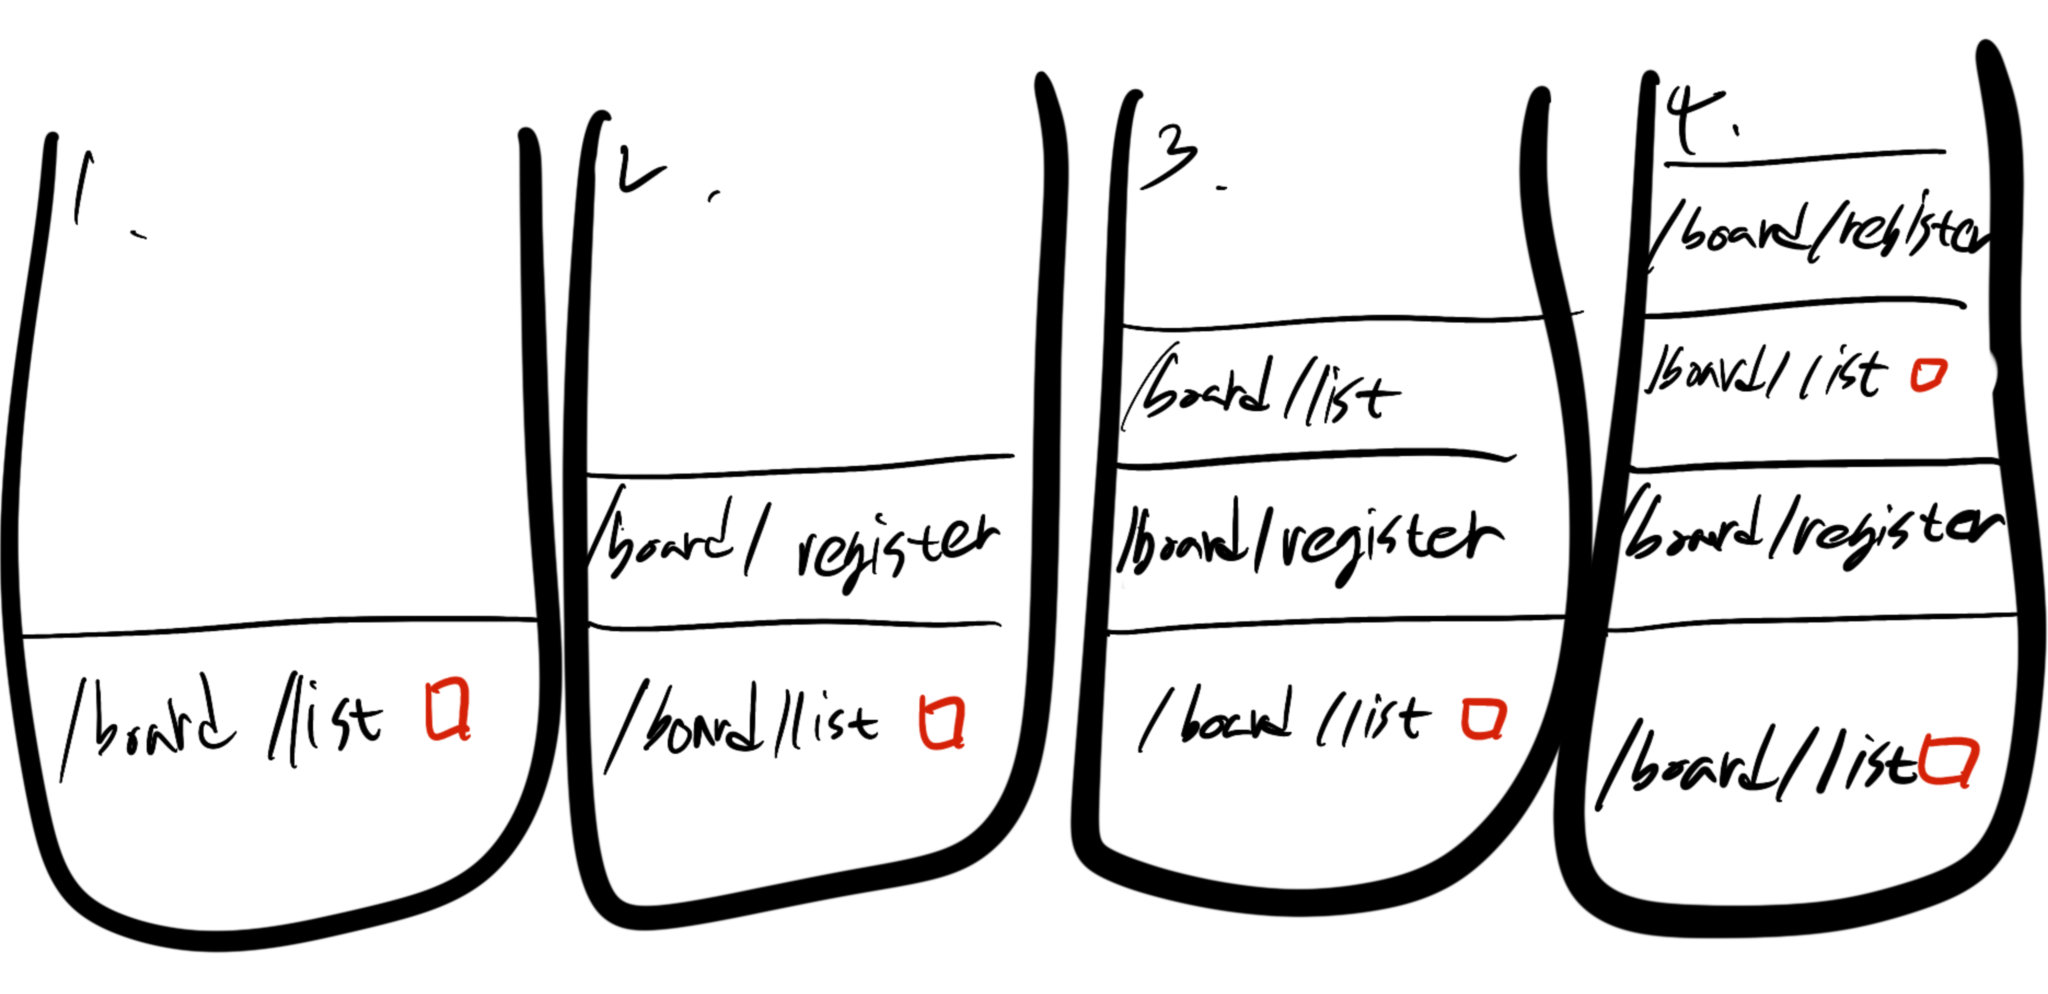 1.
/board/list
2.
/board/register
/board/list
3.
/board/list
/board/register
/board/list
4.
/board/register
/board/list
/board/register
/board/list